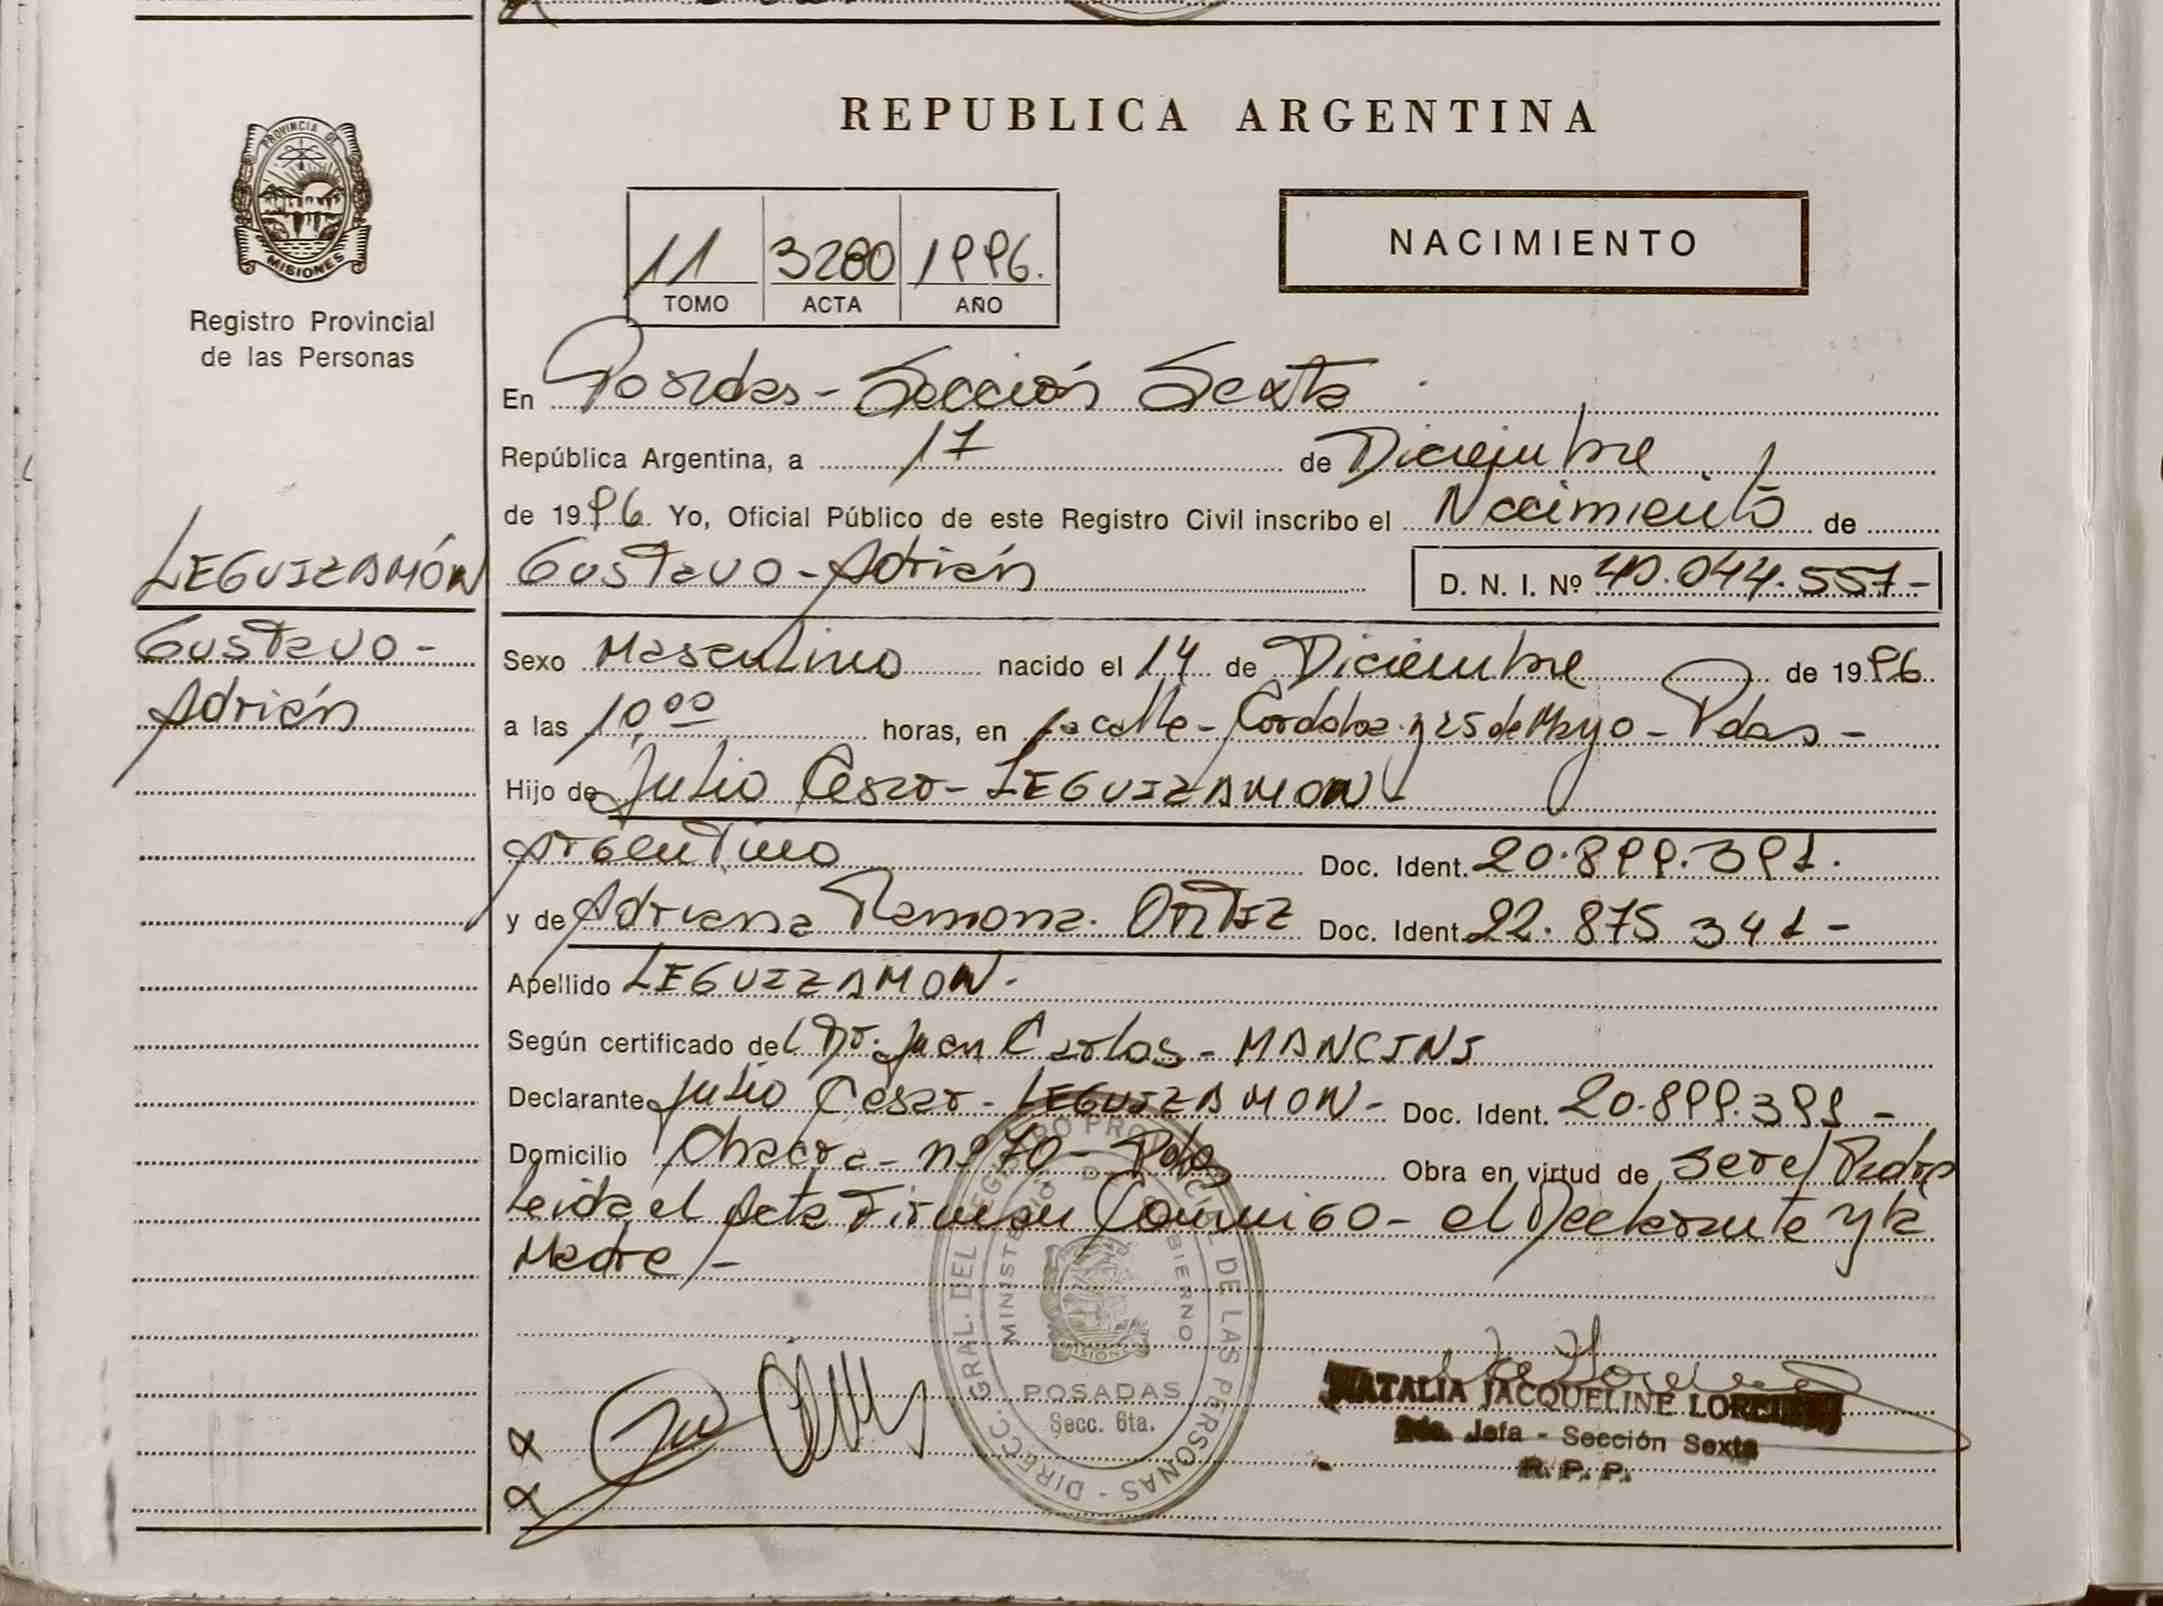 REPUBLICA ARGENTINA
PROVINCIA DE
MISIONES
Registro Provincial
de las Personas
11 3280 1996.
TOMO ACTA AÑO
NACIMIENTO
En Posadas - Sección Sexta
República Argentina, a 17 de Diciembre
de 1996. Yo, Oficial Público de este Registro Civil inscribo el Nacimiento de
LEGUIZAMÓN
Gustavo-
Adrián
Gustavo - Adrián D. N. I. Nº 40.044.557-
Sexo Masculino nacido el 14 de Diciembre de 1996.
a las 10,00 horas, en la calle - Cordoba y 25 de Mayo - Pdas -
Hijo de Julio Cesar - LEGUIZAMON -
Argentino Doc. Ident. 20.899.391.
y de Adriana Ramona. ORTIZ Doc. Ident. 22.875 341 -
Apellido LEGUIZAMON.
Según certificado del Dr. Juan Carlos - MANCINI
Declarante Julio Cesar - LEGUIZAMON - Doc. Ident. 20.899.391 -
Domicilio Chacra - nº 70 - Pdas Obra en virtud de ser el Padre
Leida el Acta Firman Conmigo - el Declarante y la
Madre/-
DIRECC. GRAL. DEL REGISTRO PROVINCIAL DE LAS PERSONAS -
MINISTERIO DE GOBIERNO
MISIONES
POSADAS
Secc. 6ta.
NATALIA JACQUELINE
Jefa - Sección Sexta
R. P. P.